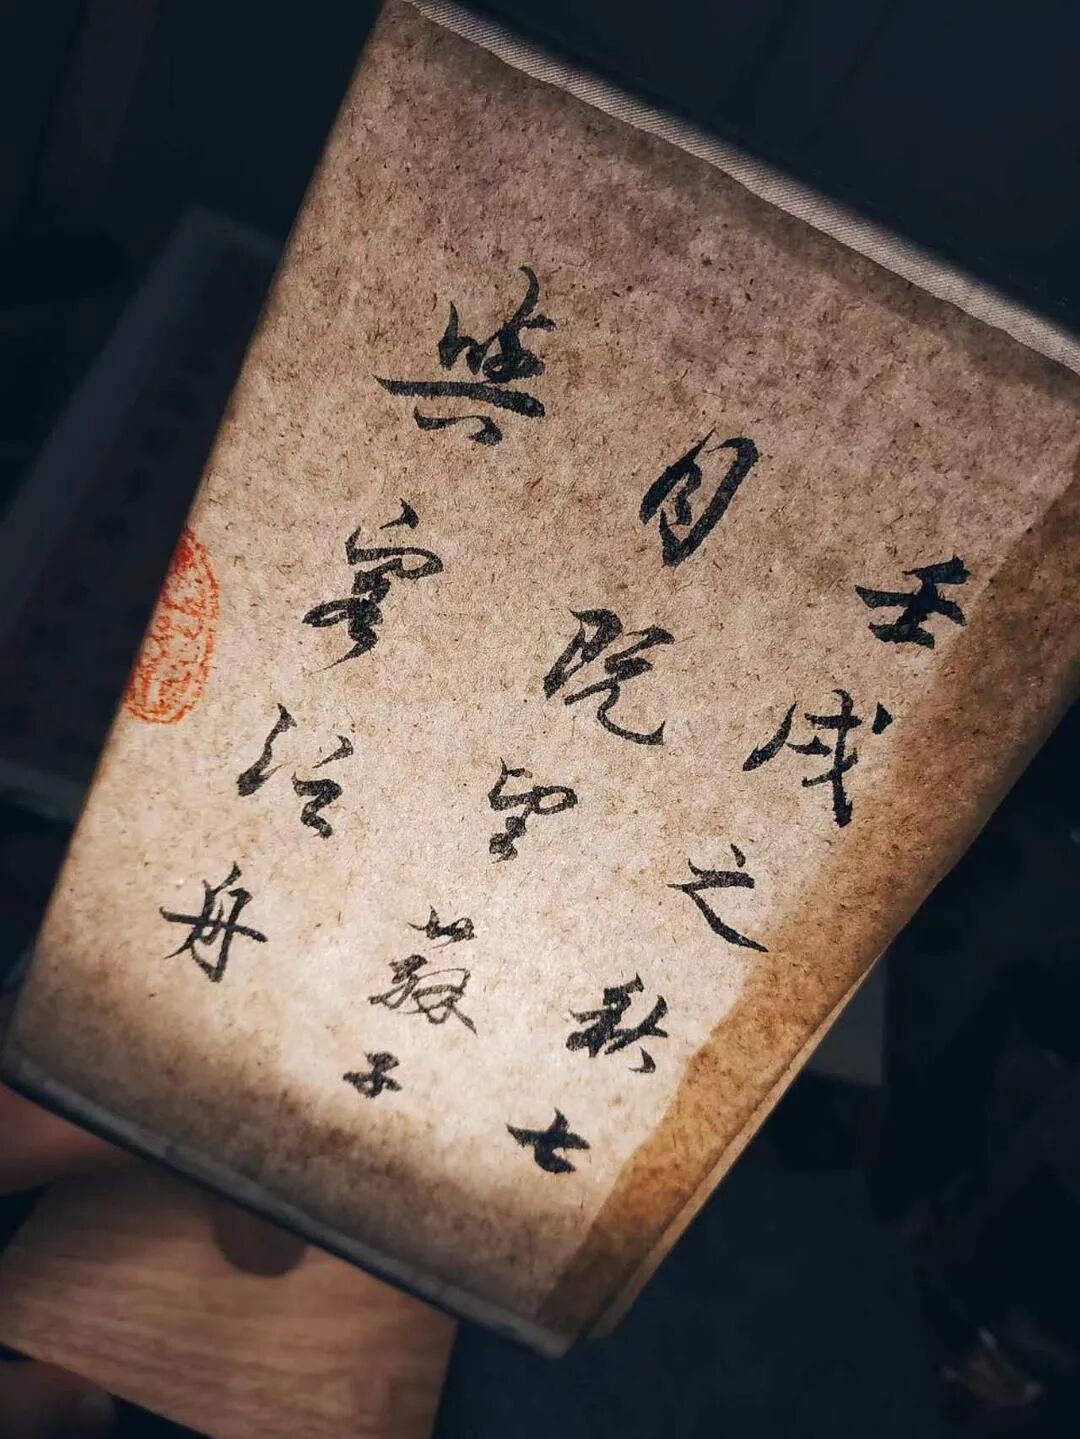 壬戌之秋七
月既望蘇子
與客泛舟